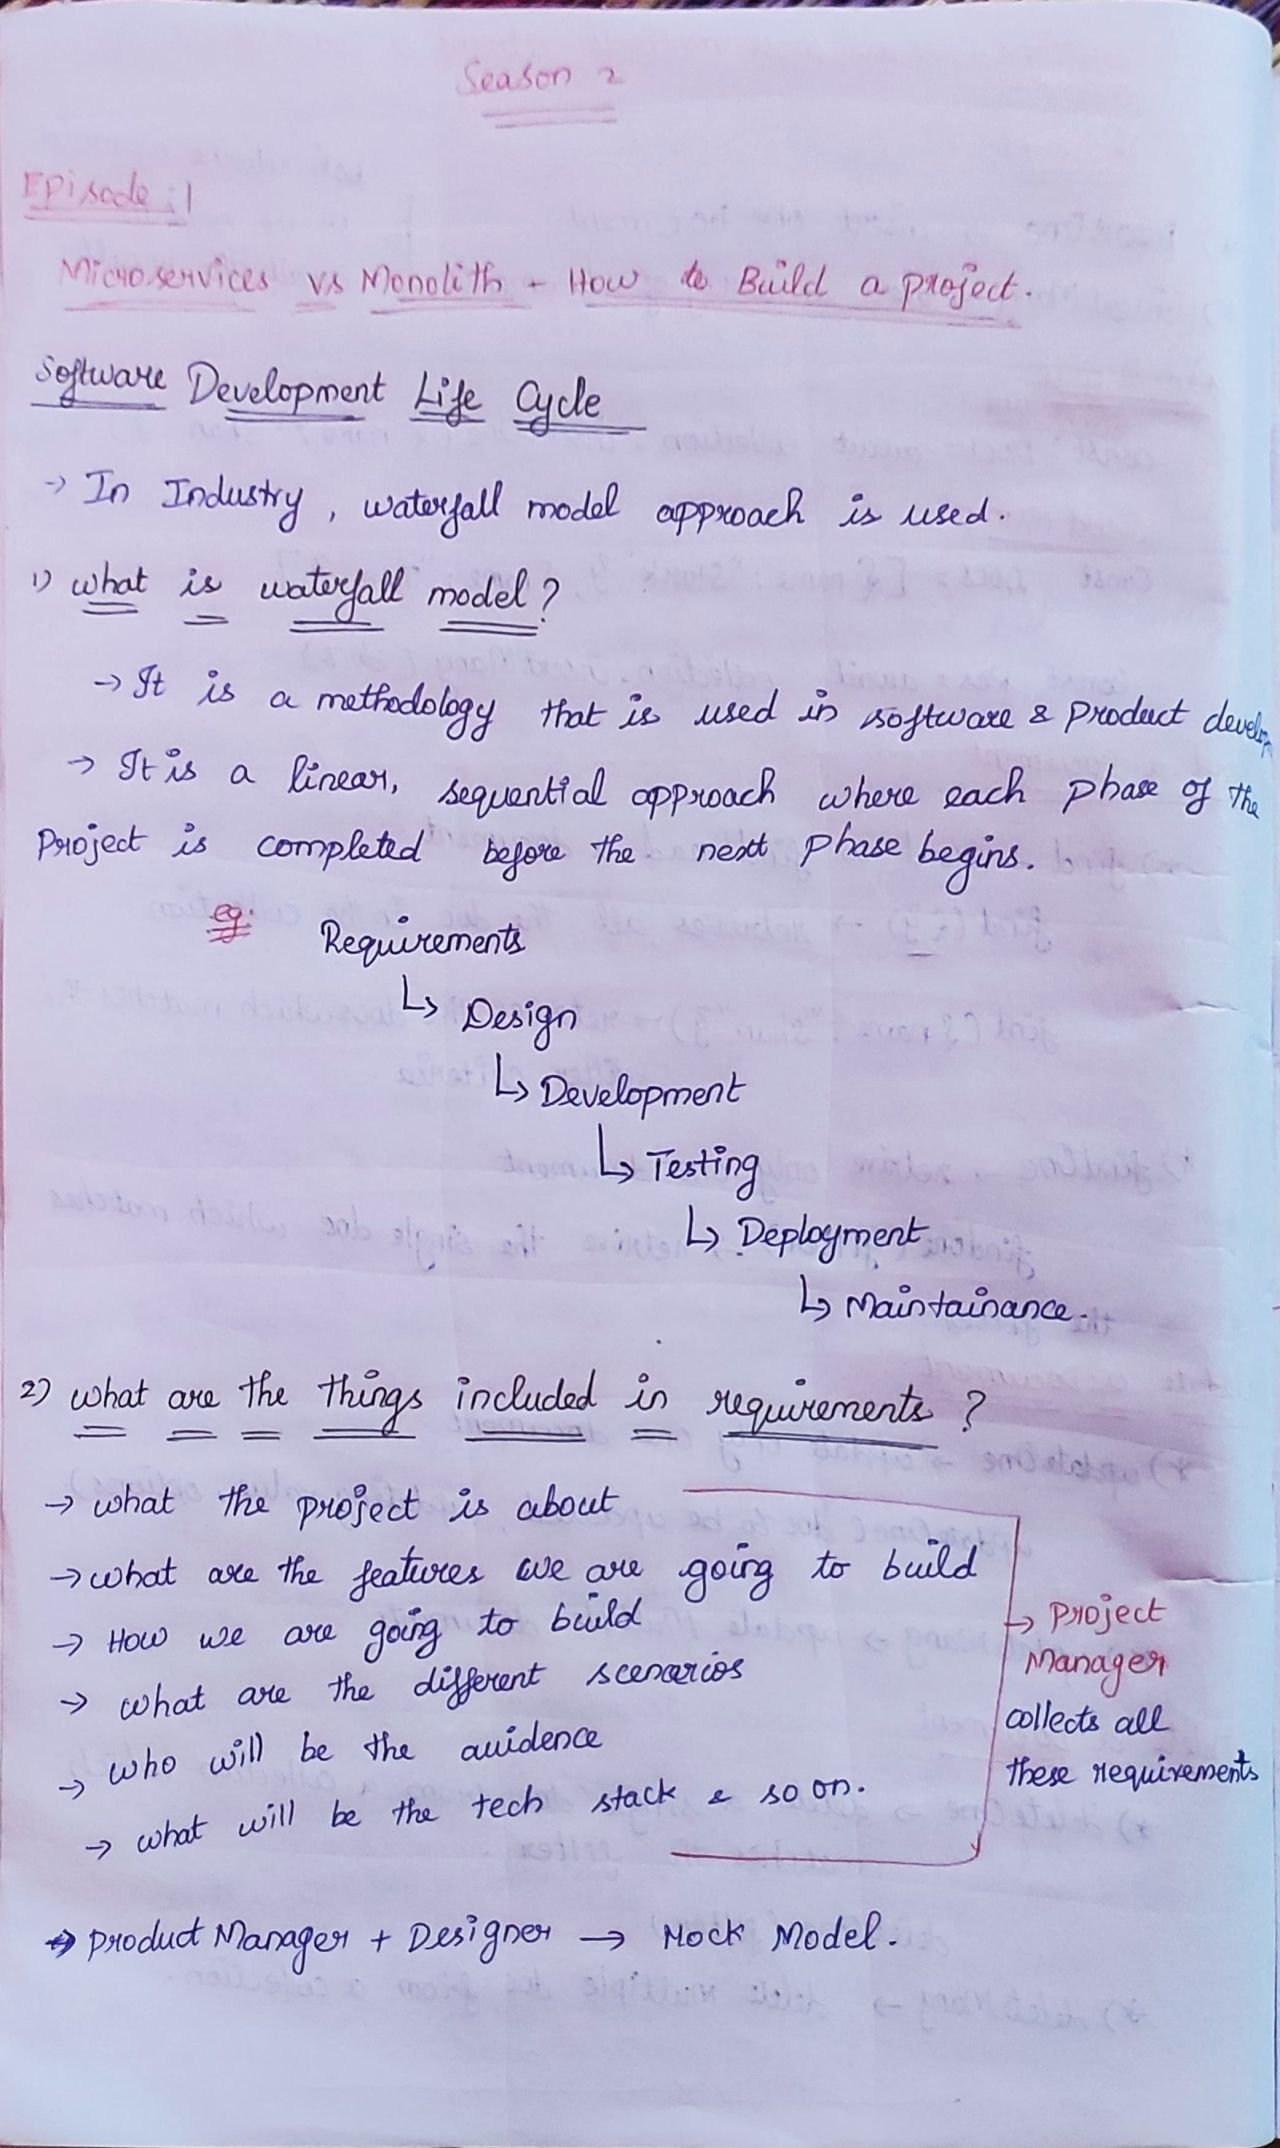 Season 2
Episode: 1
Microservices vs Monolith - How to Build a project.
Software Development Life Cycle
→ In Industry, waterfall model approach is used.
1) what is waterfall model?
→ It is a methodology that is used in software & product develop
→ It is a linear, sequential approach where each phase of the
Project is completed before the next phase begins.
eg: Requirements
↳ Design
↳ Development
↳ Testing
↳ Deployment
↳ Maintainance.
2) what are the things included in requirements?
→ what the project is about
→ what are the features we are going to build
→ How we are going to build
→ what are the different scenarios
→ who will be the auidence
→ what will be the tech stack & so on.
→ Project
Manager
collects all
these requirements
→ Product Manager + Designer → Mock Model.